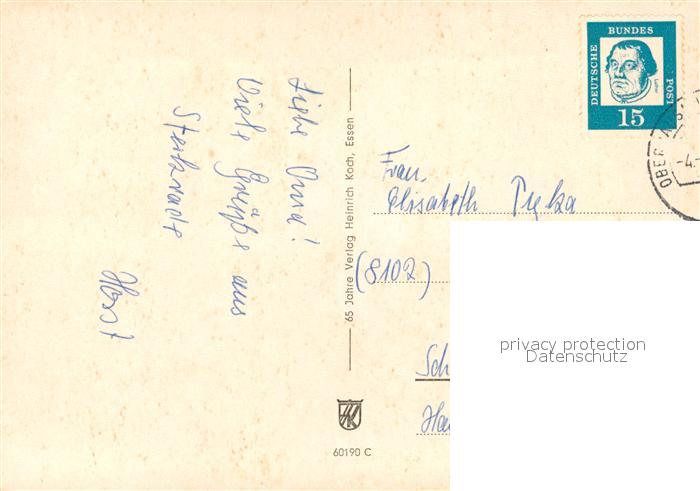 Liebe Oma!
Viele Grüße aus
Sterkrade
Horst
65 Jahre Verlag Heinrich Koch, Essen
HK
60190 C
DEUTSCHE
BUNDES
POST
15
OBER
-4.
Frau
Elisabeth Pyka
(8102)
Sch
Ha
privacy protection
Datenschutz